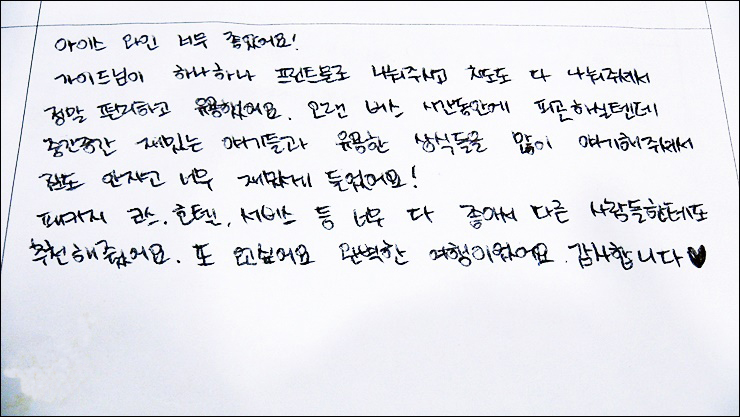 아이스 라인 너무 좋았어요!
가이드님이 하나하나 프린트물로 나눠주시고 지도도 다 나눠주셔서
정말 편리하고 유용했어요. 오랜 버스 시간동안에 피곤하실텐데
중간중간 재밌는 얘기들과 유용한 상식들을 많이 얘기해주셔서
잠도 안자고 너무 재밌게 들었어요!
패키지 코스, 호텔, 서비스 등 너무 다 좋아서 다른 사람들한테도
추천해줬어요. 또 오고싶어요 완벽한 여행이었어요. 감사합니다♥